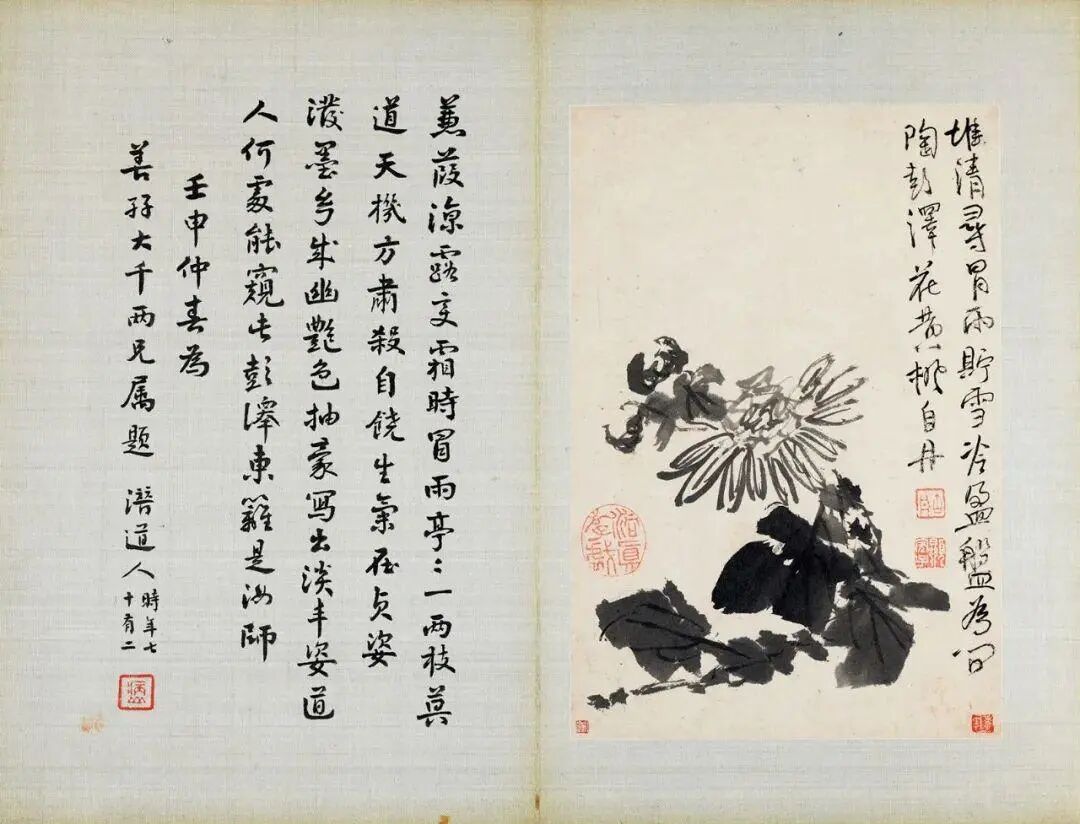 清尋冒雨貯雪冷盈盤為問
陶彭澤花黃自丹
蒹葭涼露变霜時冒雨亭〻一兩枝莫
道天機方肅殺自饒生氣在貞姿
潑墨分成幽艷色抽豪寫出淡丰姿道
人何處能窺此彭澤東籬是汝師
壬申仲春為
善孖大千兩兄属題 潛道人
時年七
十有二